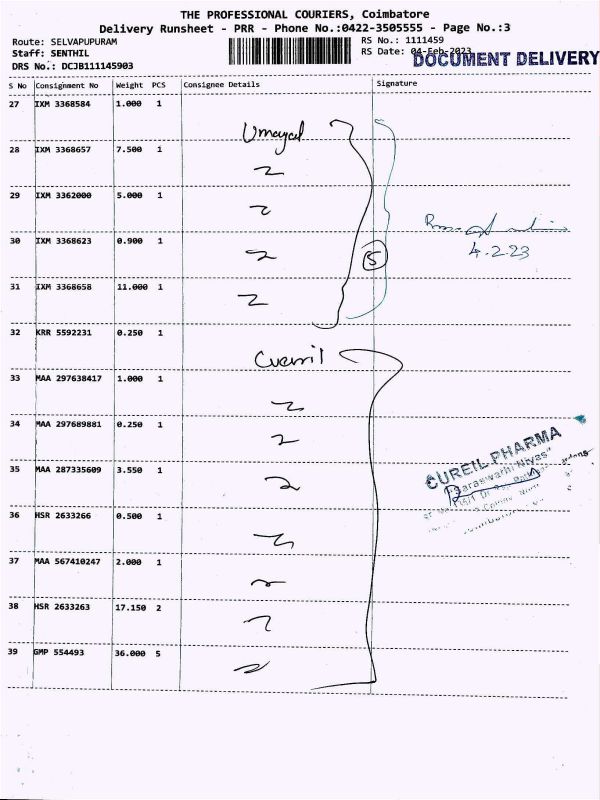 THE PROFESSIONAL COURIERS, Coimbatore
Delivery Runsheet - PRR - Phone No.:0422-3505555 - Page No.:3
Route: SELVAPUPURAM
Staff: SENTHIL
DRS No.: DCJB111145903
RS No.: 1111459
RS Date: 04-Feb-2023
DOCUMENT DELIVERY
S No Consignment No Weight PCS Consignee Details Signature
27 IXM 3368584 1.000 1
Umayal
28 IXM 3368657 7.500 1
29 IXM 3362000 5.000 1
4.2.23
30 IXM 3368623 0.900 1
5
31 IXM 3368658 11.000 1
32 KRR 5592231 0.250 1
33 MAA 297638417 1.000 1
34 MAA 297689881 0.250 1
CUREIL PHARMA
"Saraswathi Nivas"
35 MAA 287335609 3.550 1
36 HSR 2633266 0.500 1
37 MAA 567410247 2.000 1
38 HSR 2633263 17.150 2
39 GMP 554493 36.000 5